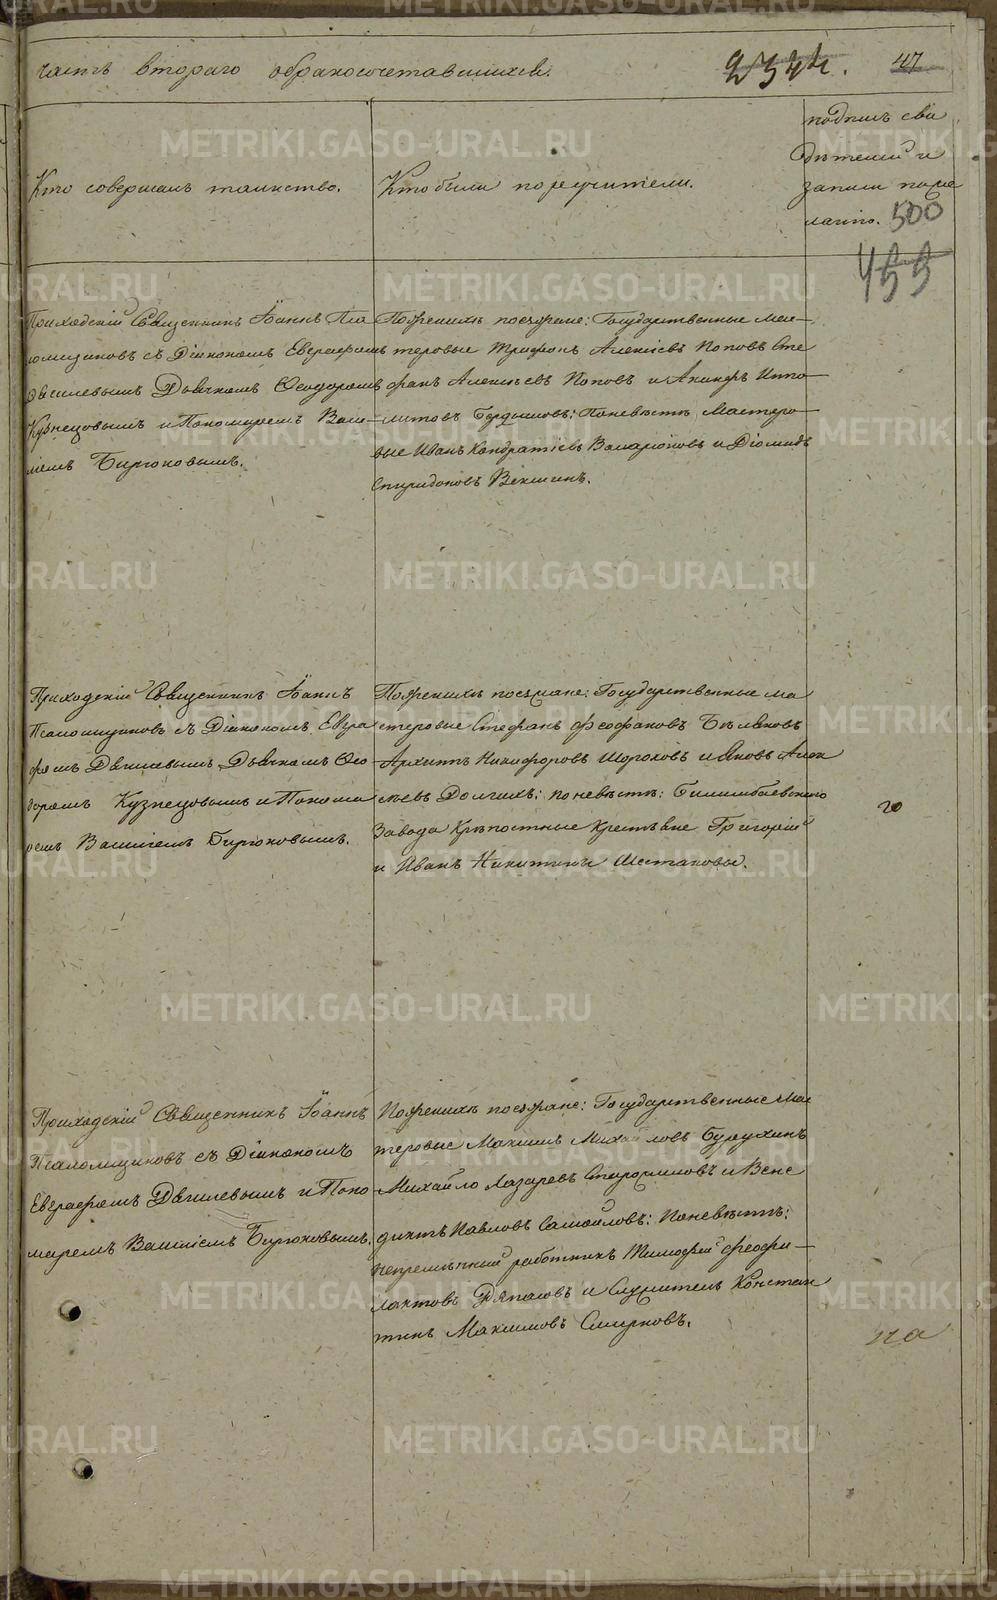 часть втораго о бракосочетавшихся.
47
Кто совершалъ таинство.
Кто были поручители.
подпись сви
дѣтелей и
записи по же
ланію.
500
455
Приходскій Священникъ Іоаннъ Пса
ломщиковъ съ Діякономъ Евграфомъ
Дьячкомъ Ѳеодоромъ
Кузнецовымъ и Пономаремъ Васи-
ліемъ Бирюковымъ.
По женихѣ поезжане: Государственные мас-
теровые Трифонъ Алексіевъ Поповъ Сте
фанъ Алексѣевъ Поповъ и Акинфъ Иппо-
литовъ Бердышовъ; По невѣстѣ Мастеро-
вые Иванъ Кондратіевъ и Діомидъ
Спиридоновъ Векшинъ.
Приходскій Священникъ Іоаннъ
Псаломщиковъ съ Діякономъ Евгра
фомъ Дьячкомъ Ѳео
доромъ Кузнецовымъ и Понома
ремъ Василіемъ Бирюковымъ.
По женихѣ поезжане: Государственные ма
стеровые Стефанъ Феофановъ Бѣляковъ
Архиппъ Никифоровъ Шороховъ и Яковъ Алек
сѣевъ Долгихъ; по невѣстѣ: Билимбаевскаго
Завода Крѣпостные Крестьяне Григорій
и Иванъ Никитины Шестаковы.
Приходскій Священникъ Іоаннъ
Псаломщиковъ съ Діякономъ
Евграфомъ и Поно
маремъ Василіемъ Бирюковымъ.
По женихѣ поезжане: Государственные мас
теровые Максимъ Михайловъ Бурухинъ
Михайло Лазаревъ и Вене
диктъ Павловъ Самойловъ: По невѣстѣ:
непремѣнный работникъ Тимофей Феофи-
лактовъ и Служитель Констан
тинъ Максимовъ Смирновъ.
METRIKI.GASO-URAL.RU